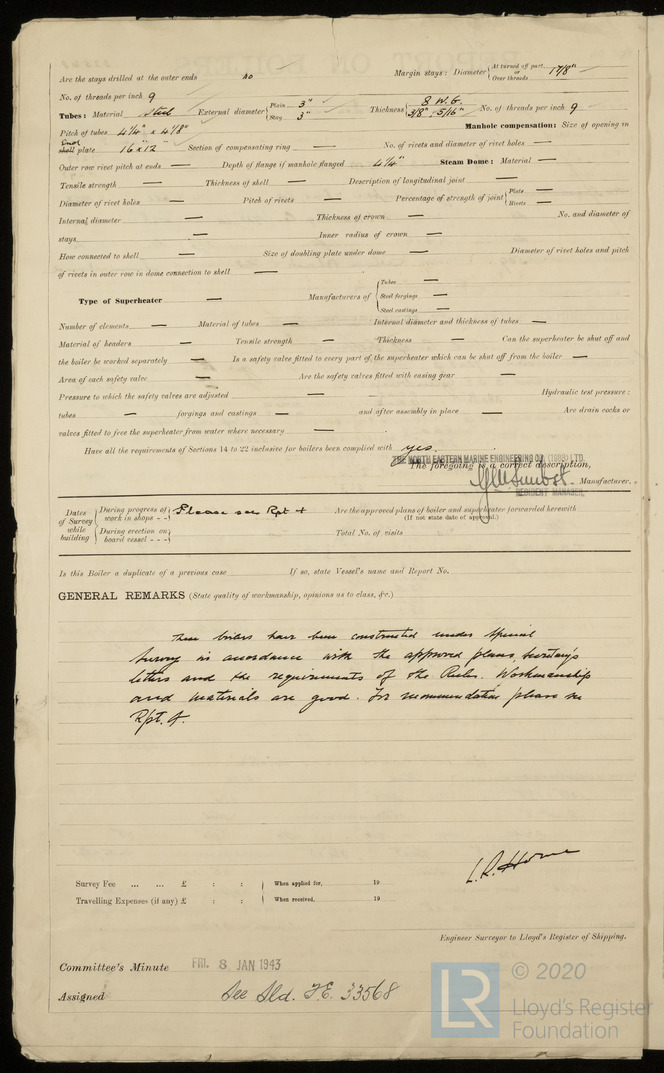 Are the stays drilled at the outer ends no Margin stays: Diameter { At turned off part, or Over threads 1 7/8"
No. of threads per inch 9
Tubes: Material Steel External diameter { Plain 3" Stay 3" Thickness { 8 W.G. 3/8" : 5/16" No. of threads per inch 9
Pitch of tubes 4 1/4" x 4 1/8" Manhole compensation: Size of opening in
End shell plate 16" x 12" Section of compensating ring — No. of rivets and diameter of rivet holes —
Outer row rivet pitch at ends — Depth of flange if manhole flanged 4 1/4" Steam Dome: Material —
Tensile strength — Thickness of shell — Description of longitudinal joint —
Diameter of rivet holes — Pitch of rivets — Percentage of strength of joint { Plate — Rivets —
Internal diameter — Thickness of crown — No. and diameter of
stays — Inner radius of crown —
How connected to shell — Size of doubling plate under dome — Diameter of rivet holes and pitch
of rivets in outer row in dome connection to shell —
Type of Superheater — Manufacturers of { Tubes — Steel forgings — Steel castings —
Number of elements — Material of tubes — Internal diameter and thickness of tubes —
Material of headers — Tensile strength — Thickness — Can the superheater be shut off and
the boiler be worked separately — Is a safety valve fitted to every part of the superheater which can be shut off from the boiler —
Area of each safety valve — Are the safety valves fitted with easing gear —
Pressure to which the safety valves are adjusted — Hydraulic test pressure:
tubes — forgings and castings — and after assembly in place — Are drain cocks or
valves fitted to free the superheater from water where necessary —
Have all the requirements of Sections 14 to 22 inclusive for boilers been complied with yes.
THE NORTH EASTERN MARINE ENGINEERING CO. (1938) LTD.
The foregoing is a correct description,
Manufacturer.
RESIDENT MANAGER.
Dates of Survey while building { During progress of work in shops - - } Please see Rpt 4 Are the approved plans of boiler and superheater forwarded herewith
(If not state date of approval.)
{ During erection on board vessel - - - } Total No. of visits
Is this Boiler a duplicate of a previous case If so, state Vessel's name and Report No.
GENERAL REMARKS (State quality of workmanship, opinions as to class, &c.)
These boilers have been constructed under Special
Survey in accordance with the approved plans, Secretary's
letters and the requirements of the Rules. Workmanship
and materials are good. For recommendation please see
Rpt. 4.
L. R. Horne
Survey Fee ... ... £ : : When applied for, 19
Travelling Expenses (if any) £ : : When received, 19
Engineer Surveyor to Lloyd's Register of Shipping.
Committee's Minute FRI. 8 JAN 1943
Assigned See Sld. F.E. 33568
LR © 2020
Lloyd's Register
Foundation